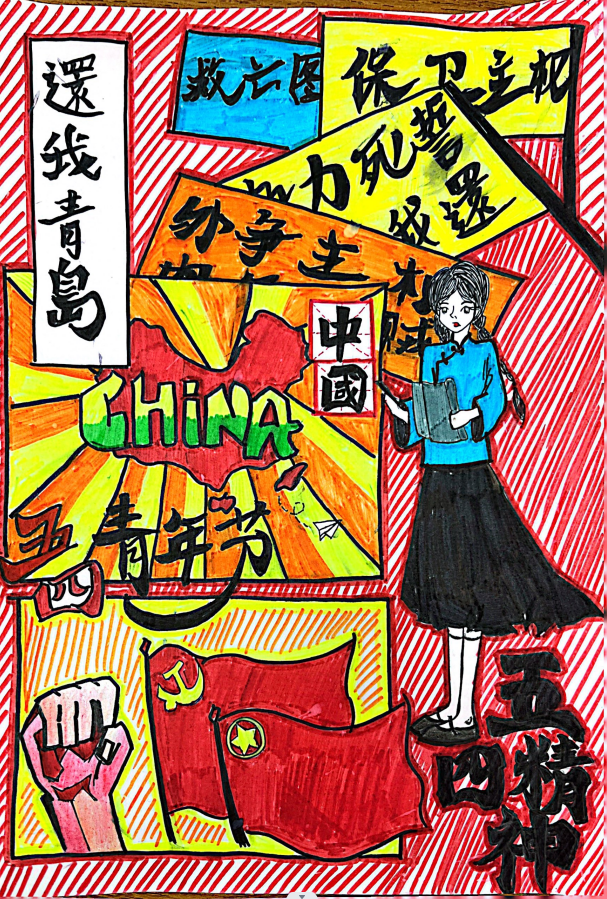 還我青島
救亡图
保卫主权
力死誓
我還
外争主权
中國
CHiNA
五四青年节
五四精神